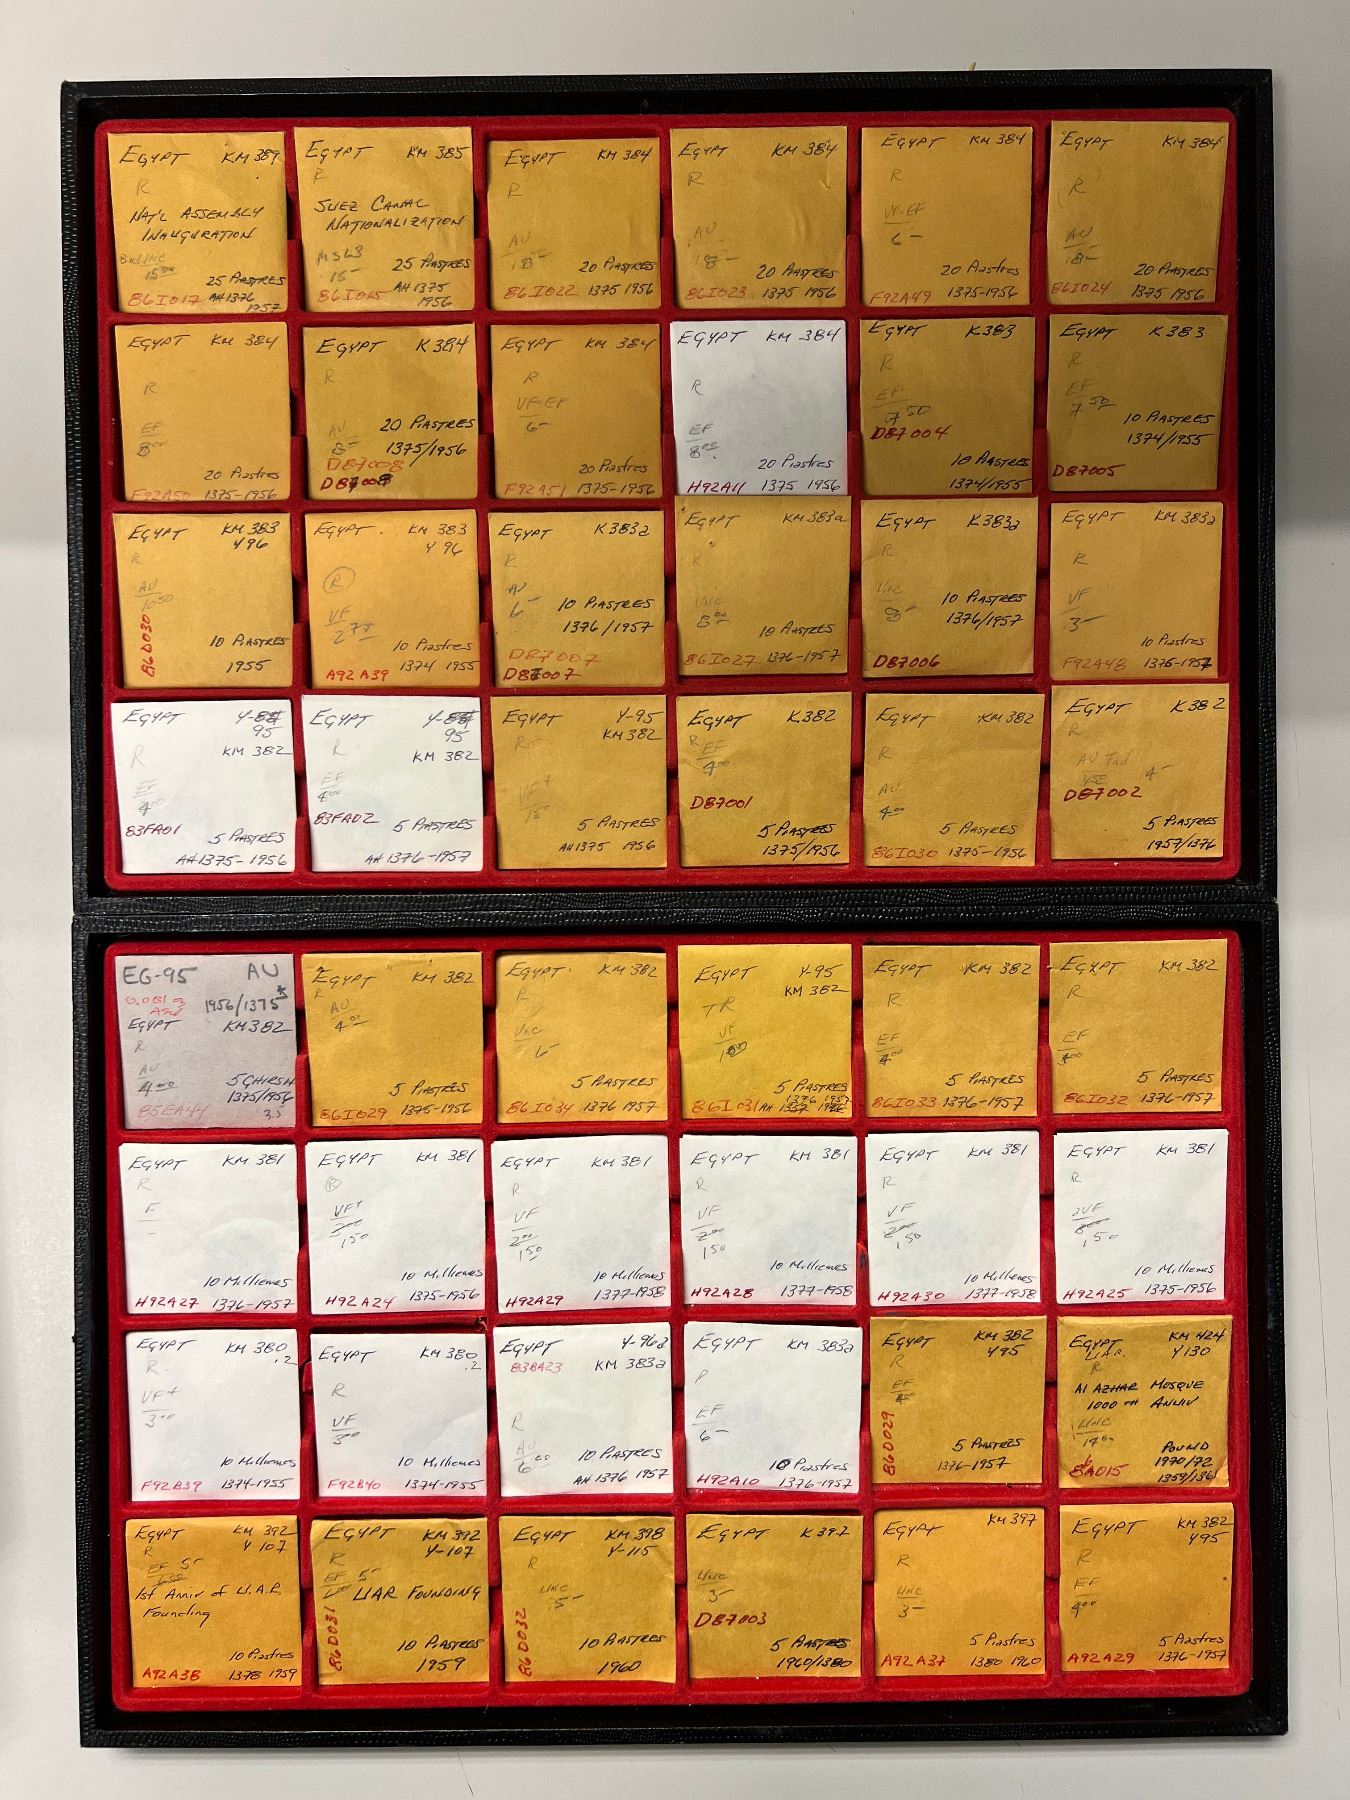 EGYPT KM 389
R
NAT'L ASSEMBLY
INAUGURATION
15⁰⁰
25 PIASTRES
86I017 AH1376
1957
EGYPT KM 385
R
SUEZ CANAL
NATIONALIZATION
MS63
15- 25 PIASTRES
86I015 AH1375
1956
EGYPT KM 384
R
AU
18- 20 PIASTRES
86I022 1375 1956
EGYPT KM 384
R
AU
18- 20 PIASTRES
86I023 1375 1956
EGYPT KM 384
R
VF-EF
6-
20 Piastres
F92A49 1375-1956
EGYPT KM 384
R
AU
18- 20 PIASTRES
86I024 1375 1956
EGYPT KM 384
R
EF
8⁰⁰
20 Piastres
F92A50 1375-1956
EGYPT K384
R
AU 20 PIASTRES
8- 1375/1956
D87008
D87008
EGYPT KM 384
R
VF-EF
6-
20 Piastres
F92A51 1375-1956
EGYPT KM 384
R
EF
8⁰⁰
20 Piastres
H92A11 1375 1956
EGYPT K383
R
EF
7 50
D87004
10 PIASTRES
1374/1955
EGYPT K383
R
EF
7 50 10 PIASTRES
1374/1955
D87005
EGYPT KM 383
Y96
R
AU
10 50
86D030
10 PIASTRES
1955
EGYPT KM 383
Y 96
R
VF
2 75
10 Piastres
A92A39 1374 1955
EGYPT K383a
R
AU
6- 10 PIASTRES
1376/1957
D87007
D87007
EGYPT KM383a
R
UNC
8⁰⁰
10 PIASTRES
86I027 1376-1957
EGYPT K383a
R
UNC
8- 10 PIASTRES
1376/1957
D87006
EGYPT KM383a
R
VF
3-
10 Piastres
F92A48 1376-1957
EGYPT Y-
95
R KM 382
EF
4⁰⁰
83FA01 5 PIASTRES
AH1375-1956
EGYPT Y-
95
R KM 382
EF
4⁰⁰
83FA02 5 PIASTRES
AH1376-1957
EGYPT Y-95
R KM 382
VF+
5 PIASTRES
AH1375 1956
EGYPT K382
R EF
4⁰⁰
D87001
5 PIASTRES
1375/1956
EGYPT KM382
R
AU
4⁰⁰
5 PIASTRES
86I030 1375-1956
EGYPT K382
R
AU 4-
D87002
5 PIASTRES
1957/1376
EG-95 AU
0.081 1956/1375
EGYPT KM382
R
AU
4⁰⁰ 5 GHIRSH
1375/1956
85EA44
EGYPT KM 382
R
AU
4⁰⁰
5 PIASTRES
86I029 1375-1956
EGYPT KM 382
R
UNC
6-
5 PIASTRES
86I034 1376 1957
EGYPT Y-95
KM 382
R
VF
5 PIASTRES
1376 1957
86I031 AH
EGYPT KM 382
R
EF
4⁰⁰
5 PIASTRES
86I033 1376-1957
EGYPT KM 382
R
EF
4⁰⁰
5 PIASTRES
86I032 1376-1957
EGYPT KM 381
R
F
10 Milliemes
H92A27 1376-1957
EGYPT KM 381
R
VF+
2⁰⁰
1 50
10 Milliemes
H92A24 1375-1956
EGYPT KM 381
R
VF
2⁰⁰
1 50
10 Milliemes
H92A29 1377-1958
EGYPT KM 381
R
VF
2⁰⁰
1 50
10 Milliemes
H92A28 1377-1958
EGYPT KM 381
R
VF
2⁰⁰
1 50
10 Milliemes
H92A30 1377-1958
EGYPT KM 381
R
VF
1 50
10 Milliemes
H92A25 1375-1956
EGYPT KM 380
.2
R
VF+
3⁰⁰
10 Milliemes
F92B39 1374-1955
EGYPT KM 380
.2
R
VF
3⁰⁰
10 Milliemes
F92B40 1374-1955
EGYPT Y-96a
83BA23 KM 383a
R
AU
6⁰⁰ 10 PIASTRES
AH 1376 1957
EGYPT KM 383a
EF
6-
10 Piastres
H92A10 1376-1957
EGYPT KM 382
Y95
R
EF
4⁰⁰
86D029
5 PIASTRES
1376-1957
EGYPT KM 424
U.A.R. Y130
R
Al AZHAR MOSQUE
1000TH ANNIV
UNC
14⁰⁰ POUND
1970/72
8A015 1359/1361
EGYPT KM 392
Y 107
R
EF 5-
1st Anniv of U.A.R.
Founding
10 Piastres
A92A38 1378 1959
EGYPT KM 392
Y-107
R
EF 5-
UAR FOUNDING
86D031
10 PIASTRES
1959
EGYPT KM 398
Y-115
R
UNC
5-
86D032
10 PIASTRES
1960
EGYPT K397
UNC
3-
D87003
5 PIASTRES
1960/1380
EGYPT KM 397
R
UNC
3-
5 Piastres
A92A37 1380 1960
EGYPT KM 382
Y95
R
EF
4⁰⁰
5 Piastres
A92A29 1376-1957